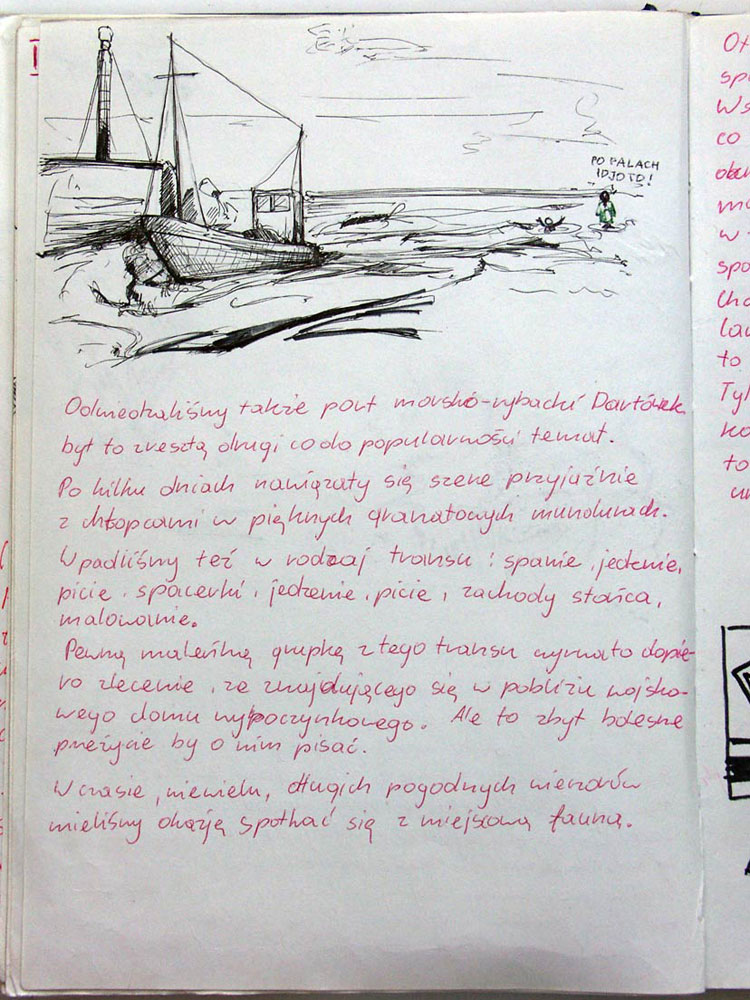 PO PALACH
IDJOTO!
Odwiedzaliśmy także port morsko-rybacki Darłówek
był to zresztą drugi co do popularności temat.
Po kilku dniach nawiązały się szere przyjaźnie
z chłopcami w pięknych granatowych mundurach.
Wpadliśmy też w rodzaj transu: spanie, jedzenie,
picie, spacerki, jedzenie, picie, zachody słońca,
malowanie.
Pewną maleńką grupkę z tego transu wyrwało dopie-
ro zlecenie, ze znajdującego się w pobliżu wojsko-
wego domu wypoczynkowego. Ale to zbyt bolesne
przeżycie by o nim pisać.
W czasie, niewielu, długich pogodnych wieczorów
mieliśmy okazję spotkać się z miejscową fauną.
co
w
to